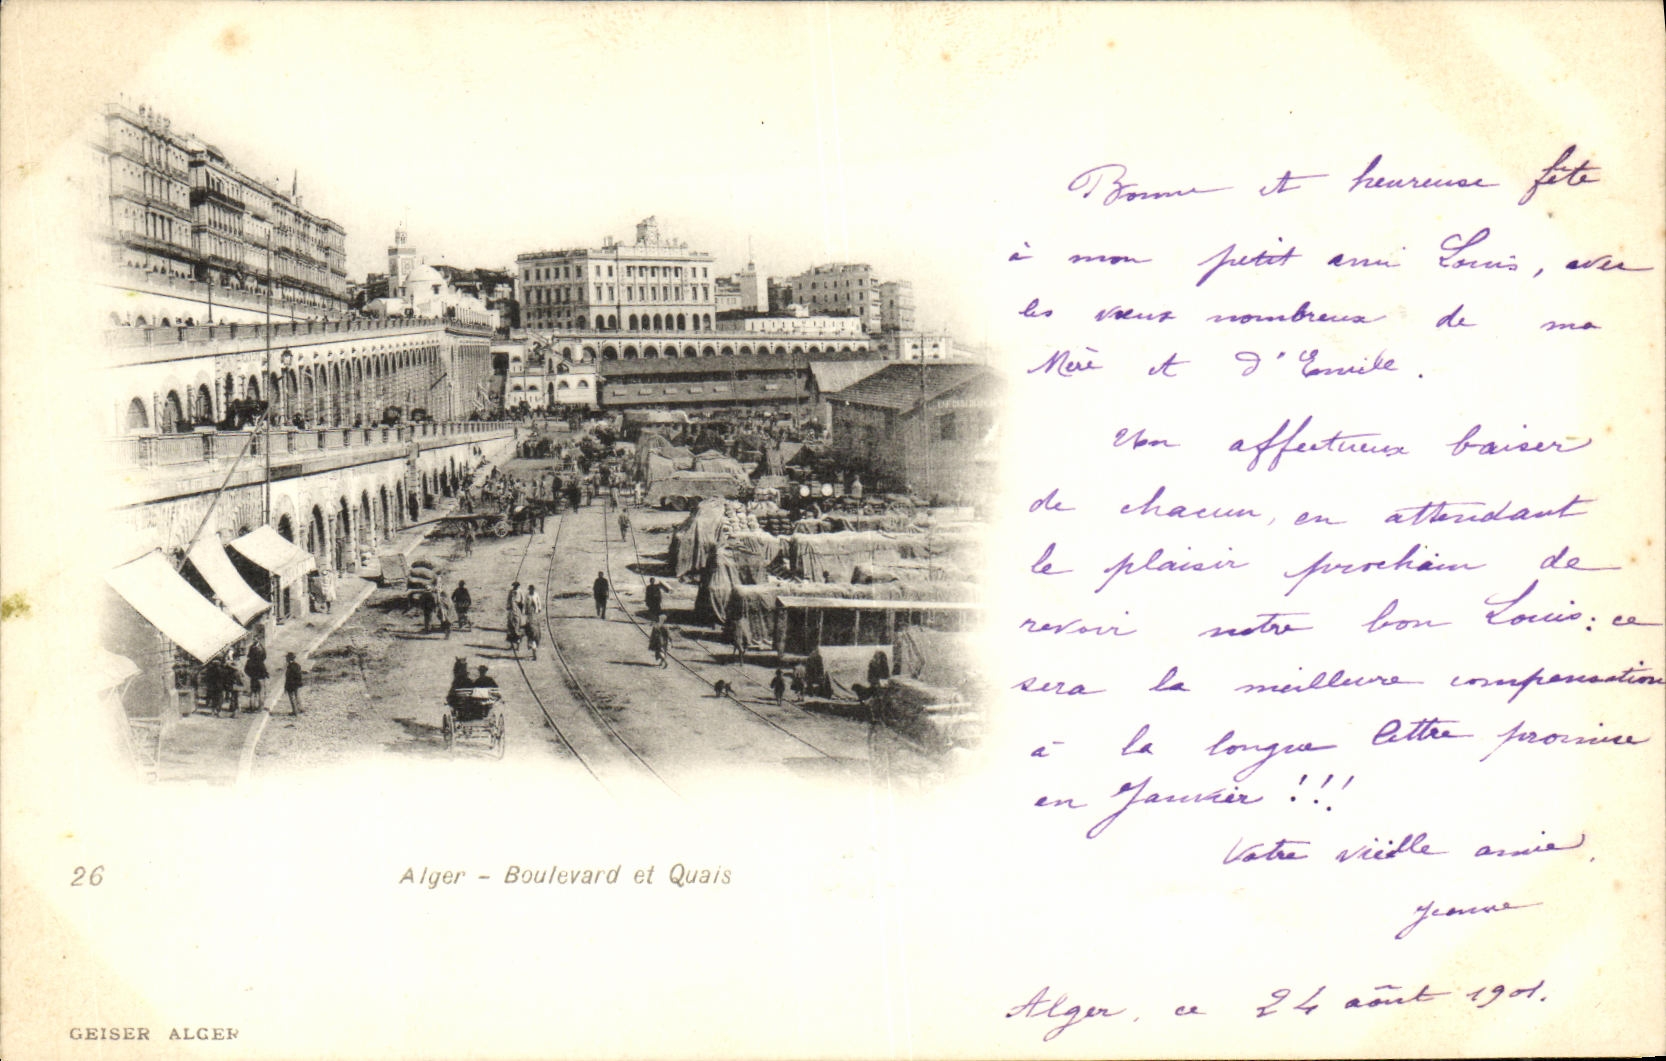 Bonne et heureuse fête
à mon petit ami Louis, avec
les vœux nombreux de ma
Mère et d'Emile.
Un affectueux baiser
de chacun, en attendant
le plaisir prochain de
revoir notre bon Louis: ce
sera la meilleure compensation
à la longue lettre promise
en Janvier !!!
Votre vieille amie,
Jeanne
Alger, ce 24 août 1901.
26 Alger - Boulevard et Quais
GEISER ALGER